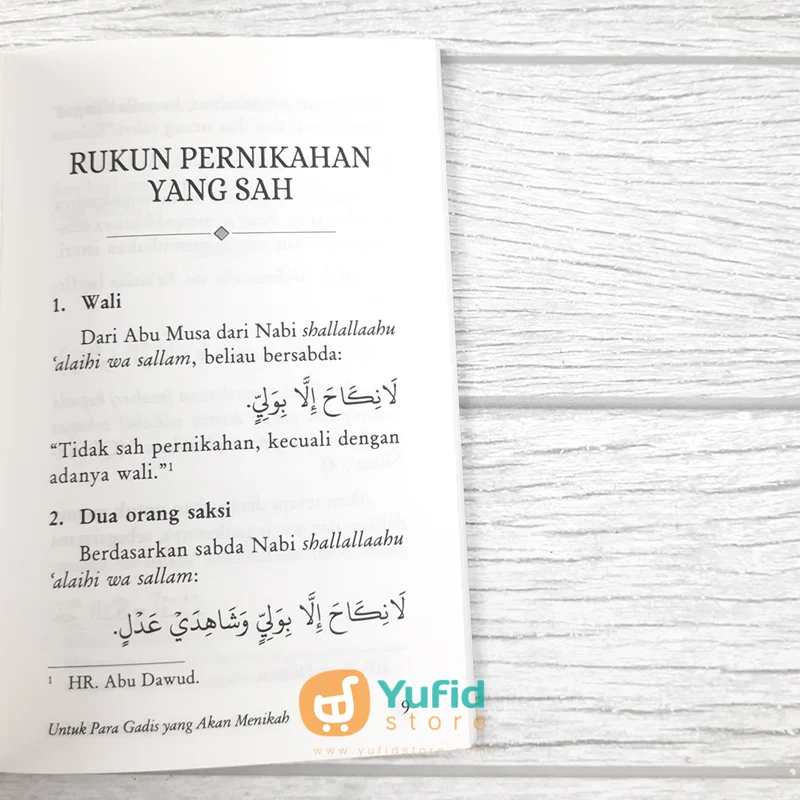 RUKUN PERNIKAHAN
YANG SAH
1. Wali
Dari Abu Musa dari Nabi shallallaahu
‘alaihi wa sallam, beliau bersabda:
لَا نِكَاحَ إِلَّا بِوَلِيٍّ.
“Tidak sah pernikahan, kecuali dengan
adanya wali.”¹
2. Dua orang saksi
Berdasarkan sabda Nabi shallallaahu
‘alaihi wa sallam:
لَا نِكَاحَ إِلَّا بِوَلِيٍّ وَشَاهِدَيْ عَدْلٍ.
¹ HR. Abu Dawud.
Untuk Para Gadis yang Akan Menikah 9
Yufid
store
www.yufidstore.com